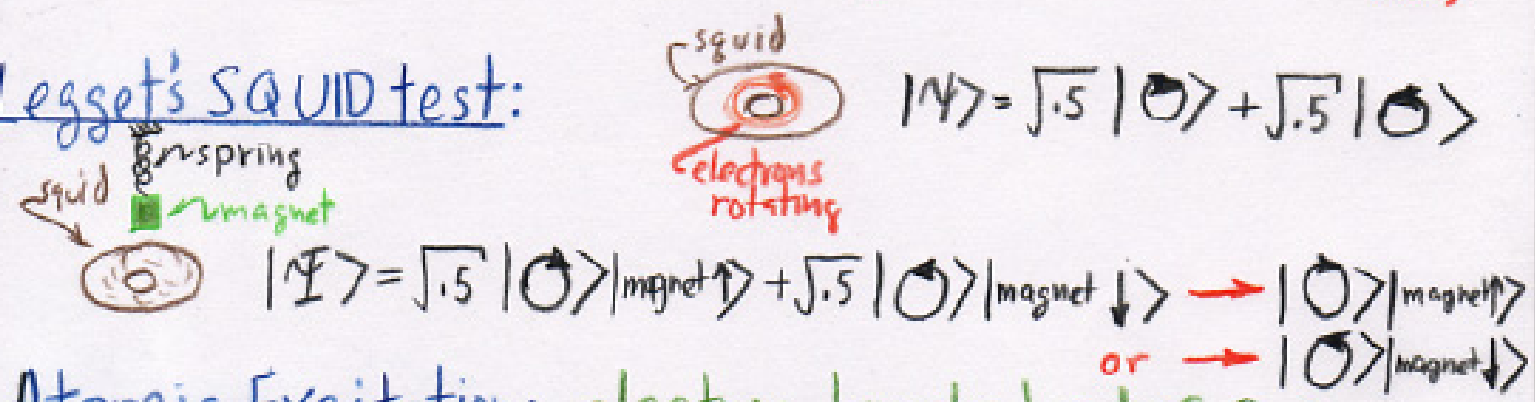 Legget's SQUID test:
squid
electrons
rotating
|ψ> = √.5 |↺> + √.5 |↻>
spring
squid
magnet
|Ψ> = √.5 |↺>|magnet↑> + √.5 |↻>|magnet ↓> → |↺>|magnet↑>
or → |↻>|magnet↓>